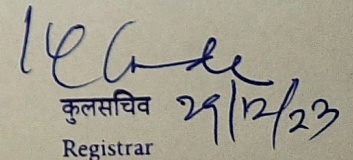 कुलसचिव 29/12/23
Registrar